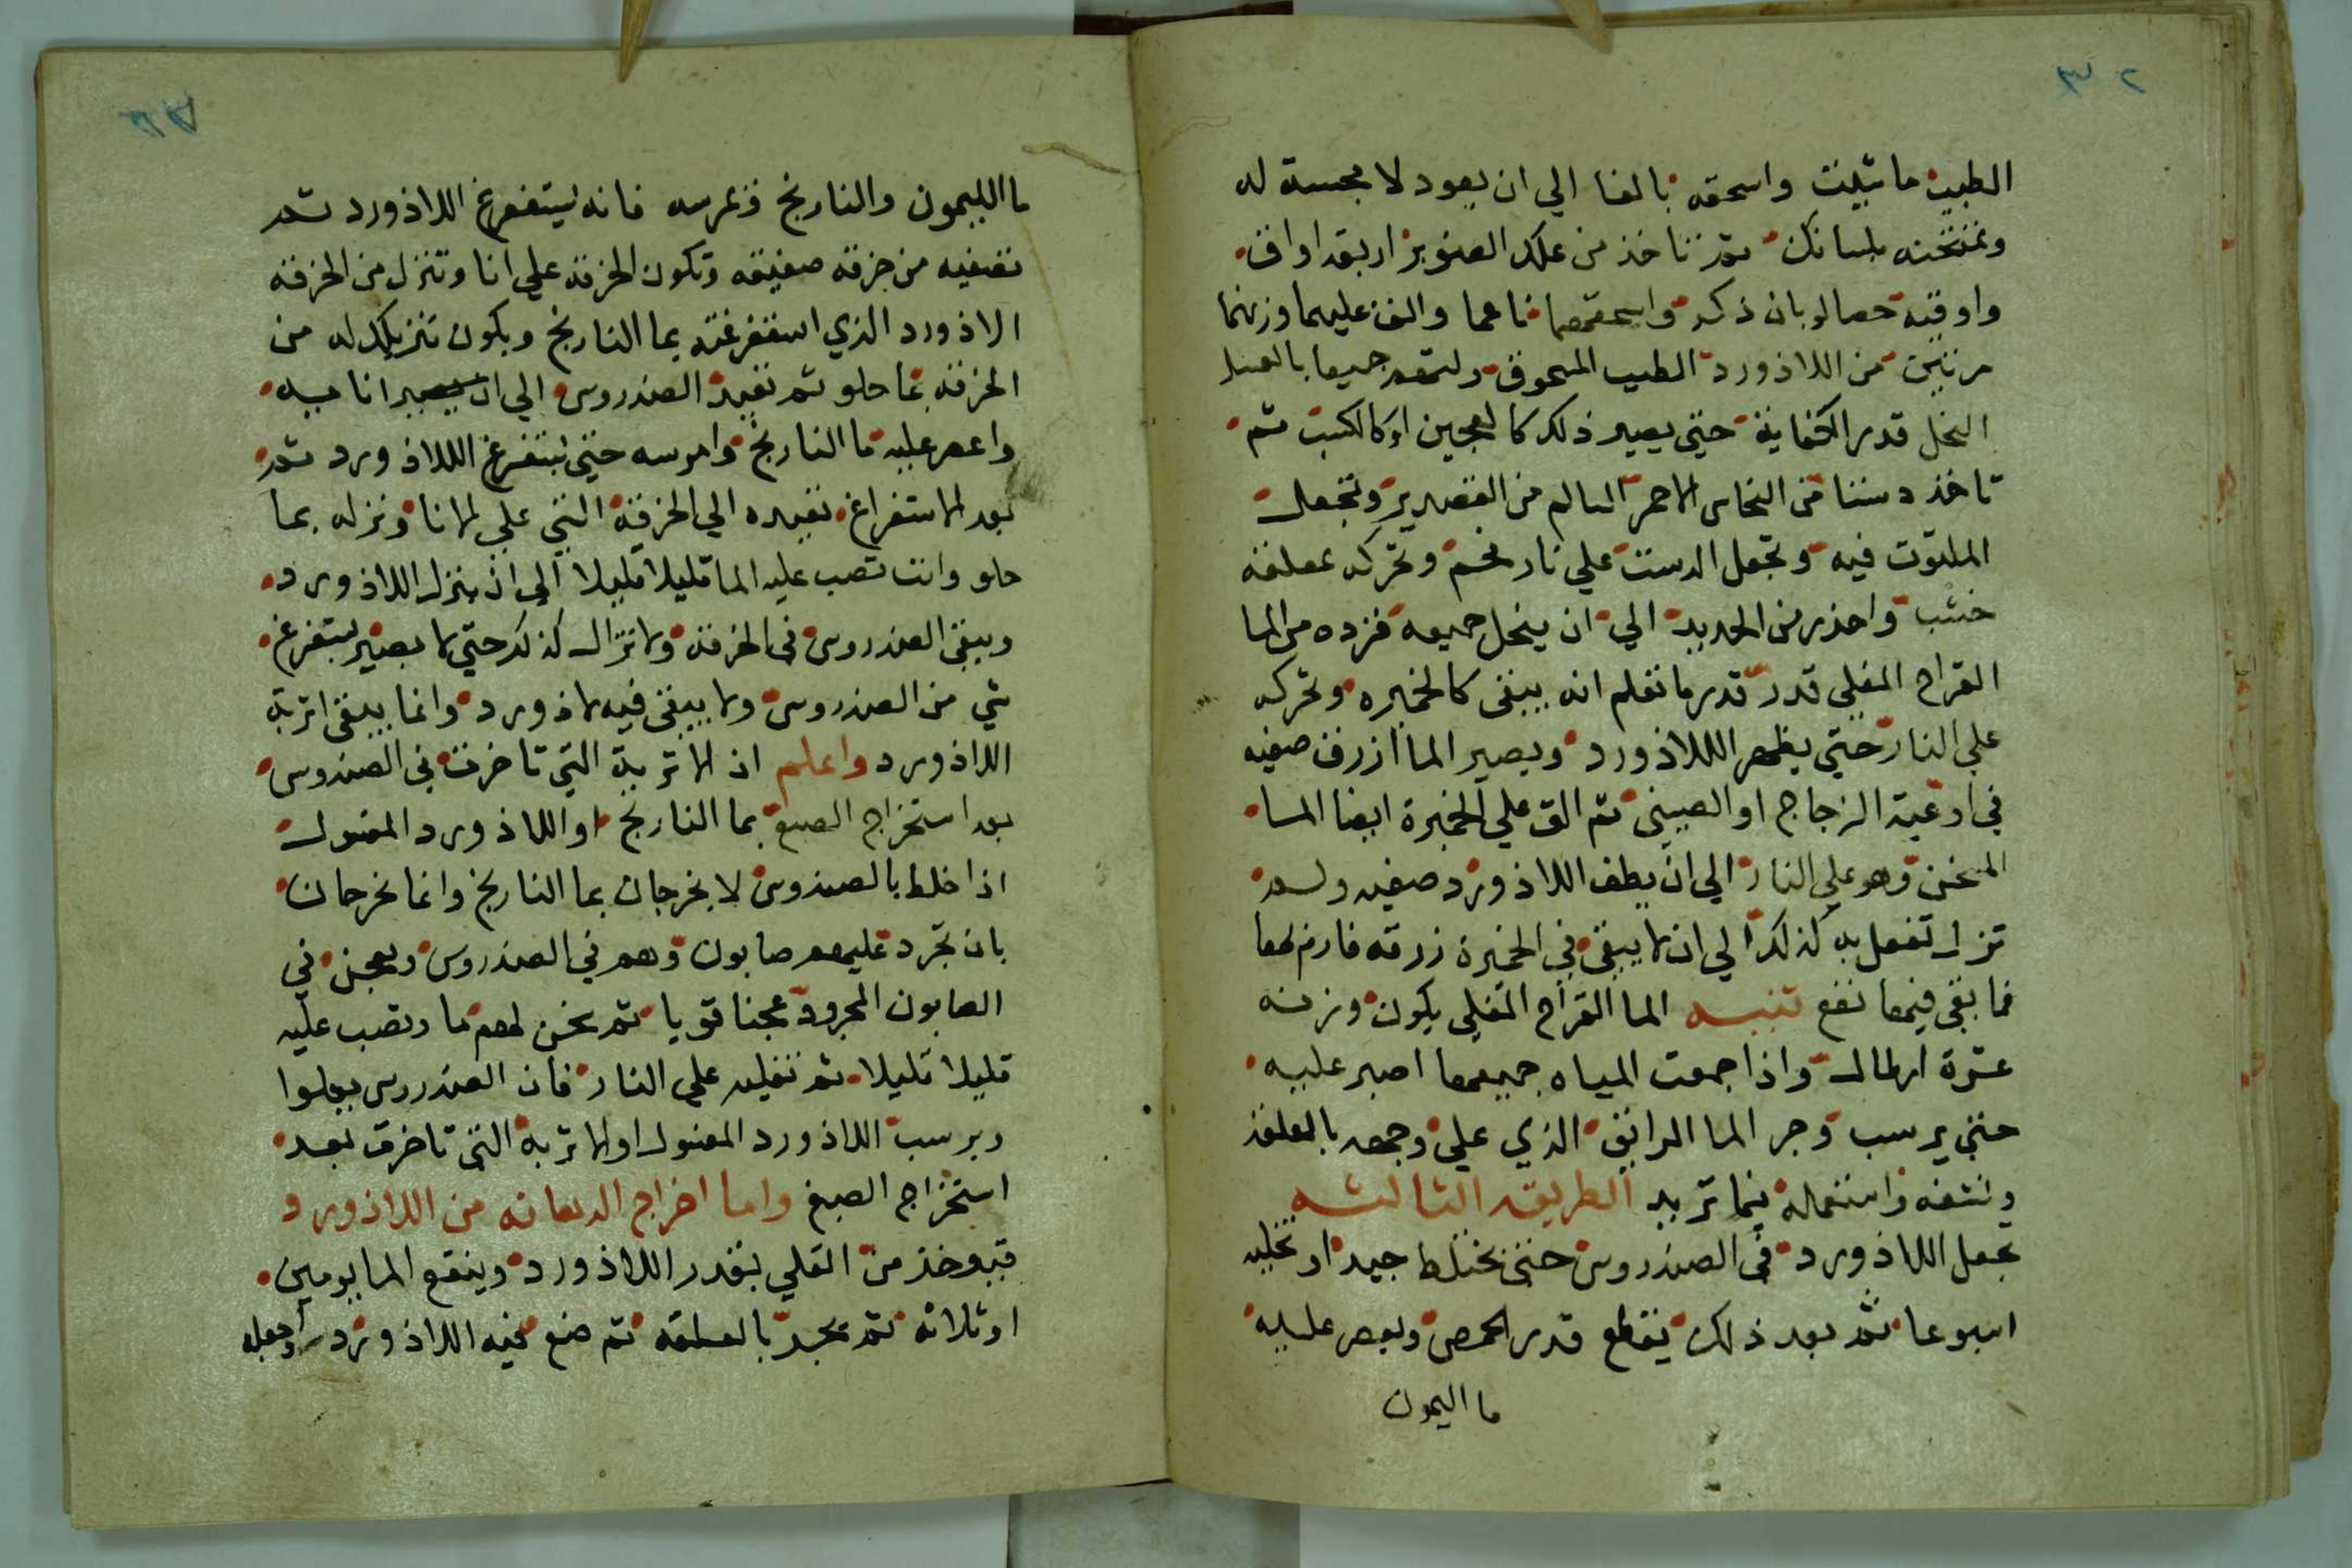 الطيب ما شيت واسحقه بالغا الي ان يعود لا مجسة له
وتمتحنه بلسانك ثم تاخذ من علك الصنوبر اربعة اواق
واوقيه حصا لوبان ذكر واسحقهما ناعما والق عليهما وزنهما
مرتين من اللاذورد الطيب المسحوق ولتهم جميعا بالعسل
النحل قدر الكفاية حتي يصير ذلك كالعجين او كالكسب ثم
تاخذ دستا من النحاس الاحمر السالم من القصدير وتجعل
الملتوت فيه وتجعل الدست علي نار فحم وتحركه بمعلقة
خشب واحذر من الحديد الي ان ينحل جميعه فزده من الما
القراح المغلي قدر قدر ما تعلم انه يبقي كالخميره وتحركه
علي النار حتي يظهر الللاذورد ويصير الما ازرق صفيه
في اوعية الزجاج او الصيني ثم الق علي الخميرة ايضا الما
المسخن وهو علي النار الي ان يطف اللاذورد صفيه ولم
تزل تفعل به كذلك الي ان لا يبقي في الخميرة زرقه فارم لها
فما بقي فيها نفع تنبيه الما القراح المغلي يكون وزنه
عشرة ارطال واذا جمعت المياه جميعها اصبر عليه
حتي يرسب وجر الما الرايق الذي علي وجهه بالعلقة
ونشفه واستعمله فيما تريد الطريقه الثالثه
تجعل اللاذورد في الصندروس حتي يختلط جيدا وتخليه
اسبوعا ثم بعد ذلك يقطع قدر الحمص ويعصر عليه
ما اليمون
ما الليمون والنارنج وتمرسه فانه يستفرغ اللاذورد ثم
تصفيه من خرقه صفيقه وتكون الخرقه علي انا وتنزل من الخرقه
الاذورد الذي استفرغته بما النارنج ويكون تنزيلك له من
الخرقه بما حلو ثم تعيد الصندروس الي ان يصير انا فيه
واعصر عليه ما النارنج وامرسه حتي يستفرغ الللاذورد ثم
بعد الاستفراغ تعيده الي الخرقة التي علي الانا ونزله بما
حلو وانت تصب عليه الما قليلا قليلا الي ان ينزل اللاذورد
ويبقي الصندروس في الخرقه ولا تزال كذلك حتي لا يصير يستفرغ
شي من الصندروس ولا يبقي فيه لاذورد وانما يبقي اتربة
اللاذورد واعلم ان الاتربة التي تاخرت في الصندروس
بعد استخراج الصبغ بما النارنج او اللاذورد المغسول
اذا خلط بالصندروس لا يخرجان بما النارنج وانما يخرجان
بان تجرد عليهم صابون وهم في الصندروس ويعجن في
الصابون المجرود عجنا قويا ثم يسخن لهم ما وتصب عليه
قليلا قليلا ثم تغليه علي النار فان الصندروس يعلوا
ويرسب اللاذورد المغسول او الاتربة التي تاخرت بعد
استخراج الصبغ واما اخراج الدهانه من اللاذورد
فيوخذ من القلي بقدر اللاذورد وينقع الما يومين
او ثلاثه ثم يجر بالعلقه ثم ضع فيه اللاذورد واجعله